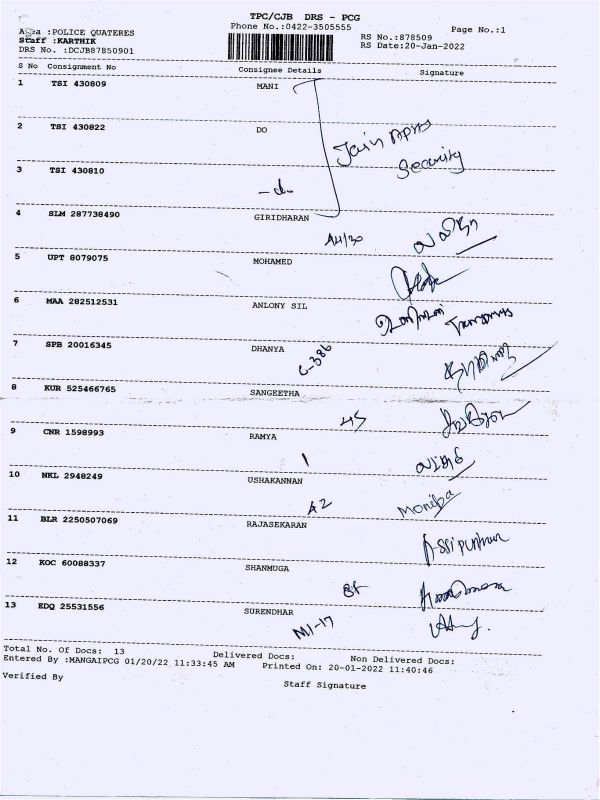 TPC/CJB DRS - PCG
Phone No.:0422-3505555
Page No.:1
Area :POLICE QUATERES
Staff :KARTHIK
DRS No. :DCJB87850901
RS No.:878509
RS Date:20-Jan-2022
S No Consignment No Consignee Details Signature
1 TSI 430809 MANI
2 TSI 430822 DO
Jain Apts
Security
3 TSI 430810
4 SLM 287738490 GIRIDHARAN
A4/30
5 UPT 8079075 MOHAMED
6 MAA 282512531 ANLONY SIL
7 SPB 20016345 DHANYA
C-386
8 KUR 525466765 SANGEETHA
45
9 CNR 1598993 RAMYA
1
10 NKL 2948249 USHAKANNAN
A2
11 BLR 2250507069 RAJASEKARAN
12 KOC 60088337 SHANMUGA
13 EDQ 25531556 SURENDHAR
M1-17
Total No. Of Docs: 13 Delivered Docs: Non Delivered Docs:
Entered By :MANGAIPCG 01/20/22 11:33:45 AM Printed On: 20-01-2022 11:40:46
Verified By Staff Signature